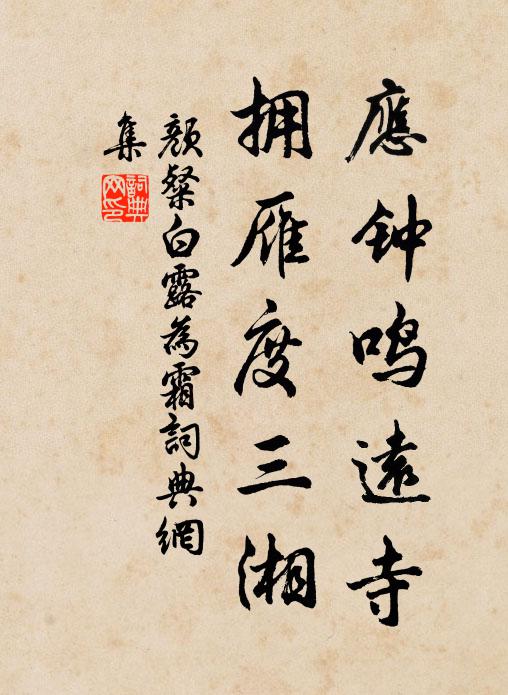 應钟鸣遠寺
拥雁度三湘
顔粲白露為霜詞典網
集
詞典
网印